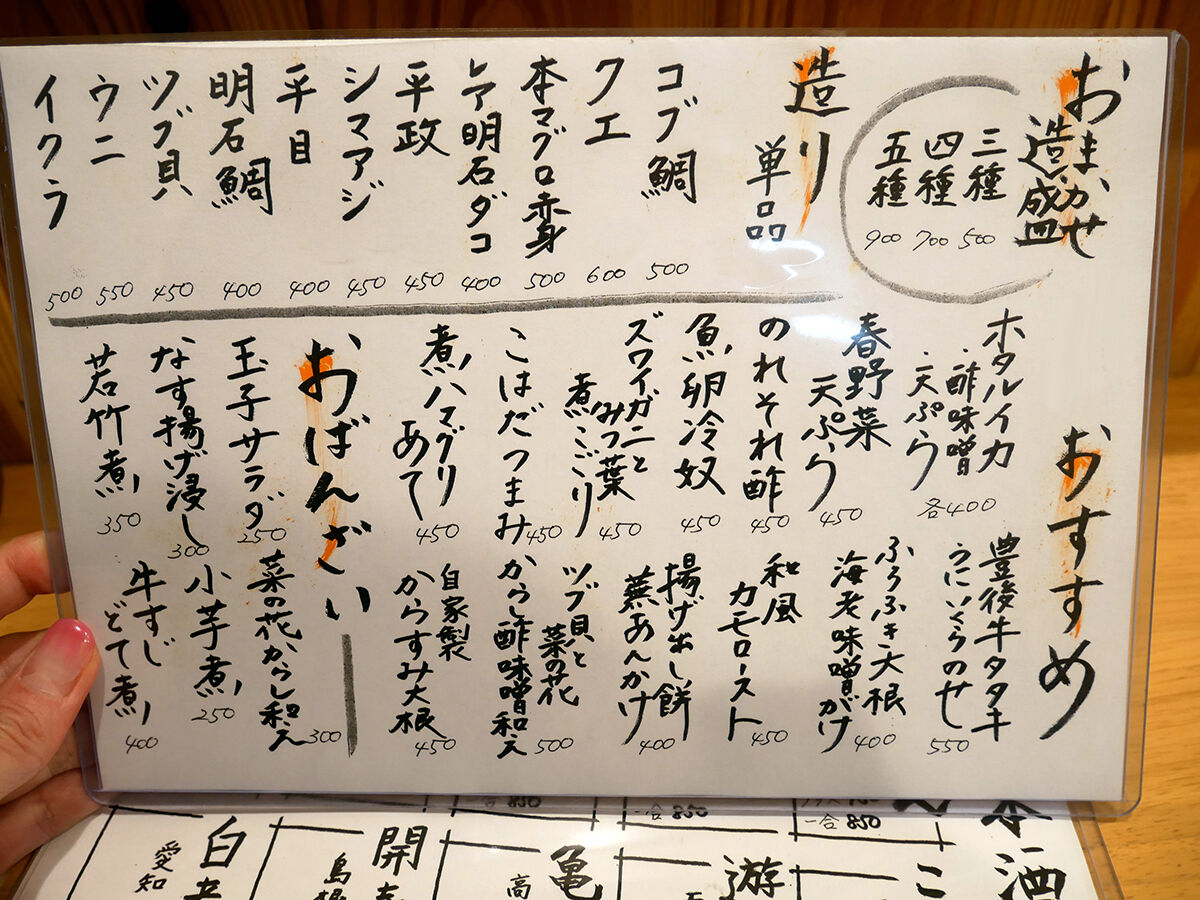 おまかせ
造盛
三種 500
四種 700
五種 900
造り
単品
コブ鯛 500
クエ 600
本マグロ赤身 500
レア明石ダコ 400
平政 450
シマアジ 450
平目 400
明石鯛 400
ツブ貝 450
ウニ 550
イクラ 500
おすすめ
ホタルイカ
・酢味噌
・天ぷら
各400
春野菜
天ぷら 450
のれそれ酢 450
魚卵冷奴 450
ズワイガニと
みつ葉 450
煮こごり
こはだつまみ 450
煮ハマグリ
あて 450
豊後牛タタキ
うにいくらのせ 550
ふろふき大根
海老味噌がけ 400
和風
カモロースト 450
揚げ出し餅
蕪あんかけ 400
ツブ貝と
菜の花
からし酢味噌和え 500
自家製
からすみ大根 450
おばんざい
玉子サラダ 250
なす揚げ浸し 300
若竹煮 350
菜の花からし和え 300
小芋煮 250
牛すじ
どて煮 400
一合 850
一合 850
本酒
遊
亀
高
開
島根
白
愛知